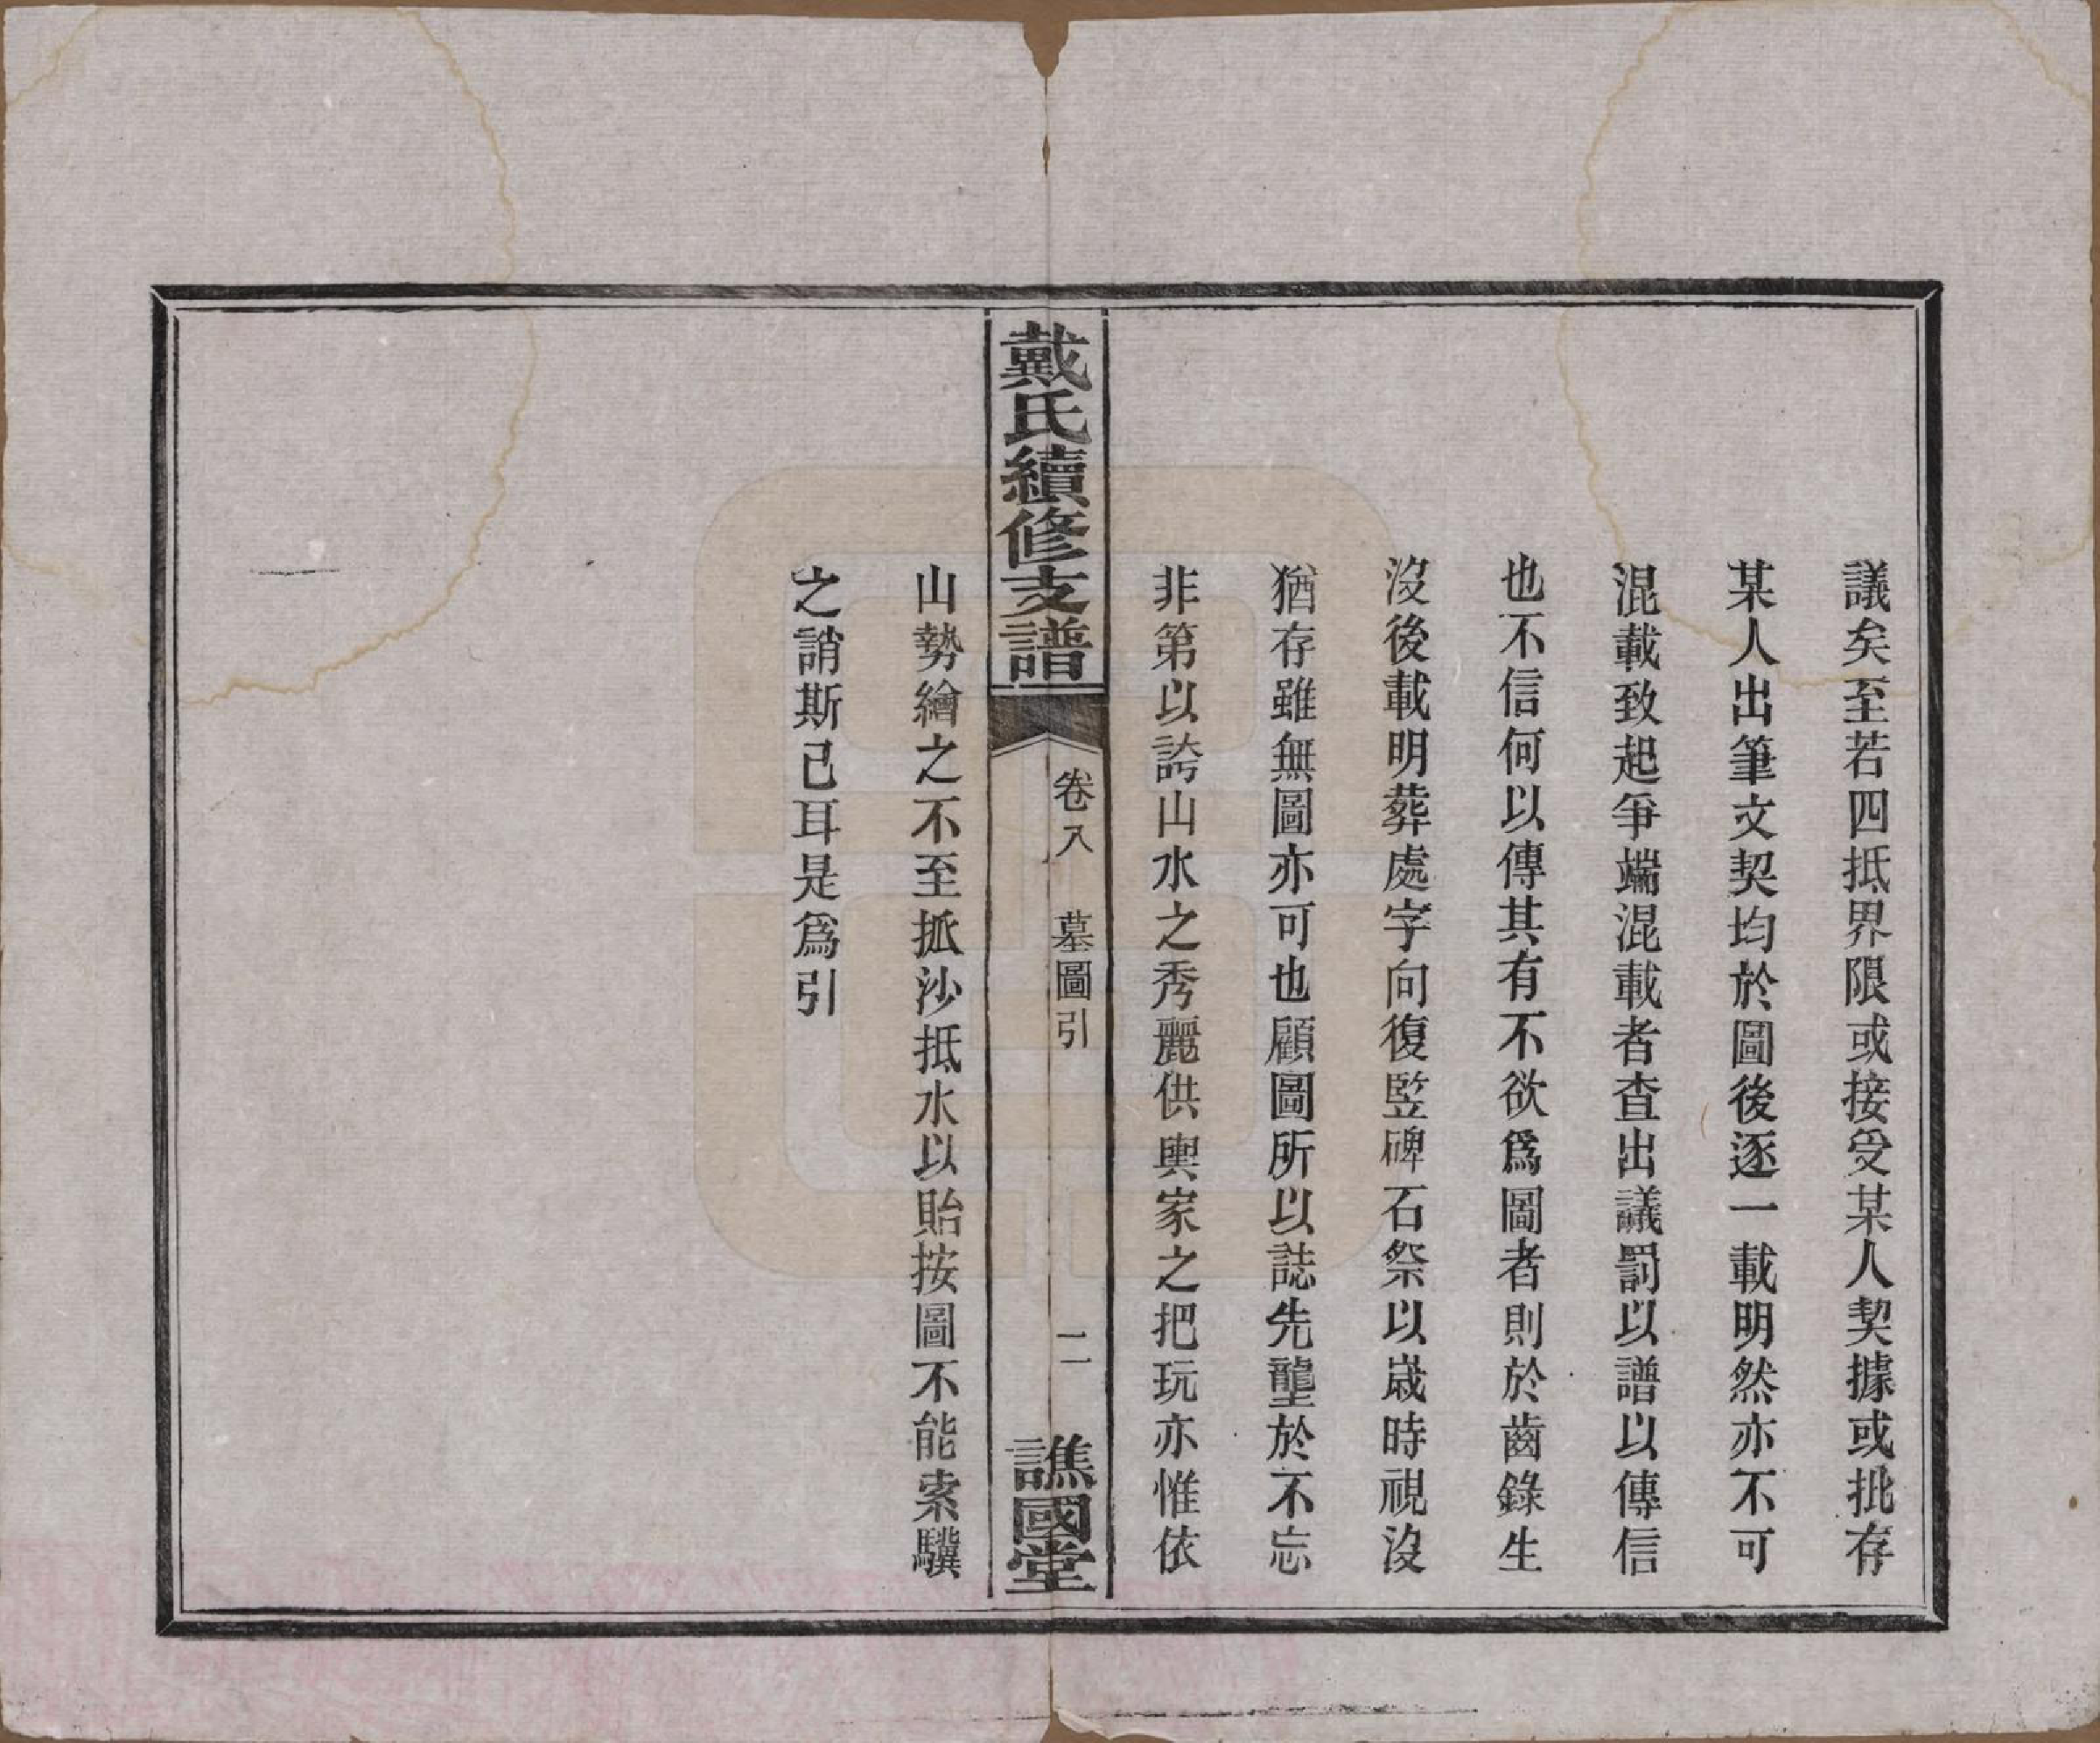 議矣至若四抵界限或接受某人契據或批存
某人出筆文契均於圖後逐一載明然亦不可
混載致起爭端混載者查出議罰以譜以傳信
也不信何以傳其有不欲爲圖者則於齒錄生
沒後載明葬處字向復監碑石祭以歲時視沒
猶存雖無圖亦可也顧圖所以誌先壟於不忘
非第以誇山水之秀麗供輿家之把玩亦惟依
戴氏續修支譜
卷八
墓圖引
二
譙國堂
山勢繪之不至抓沙抵水以貽按圖不能索驥
之誚斯已耳是爲引